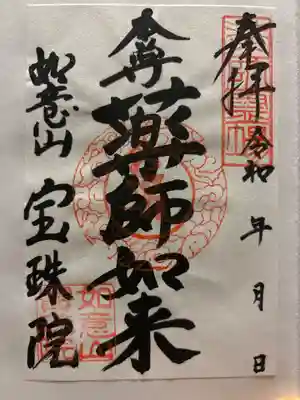 奉拝 令和 年 月 日
薬師如来
如意山 宝珠院
如意山